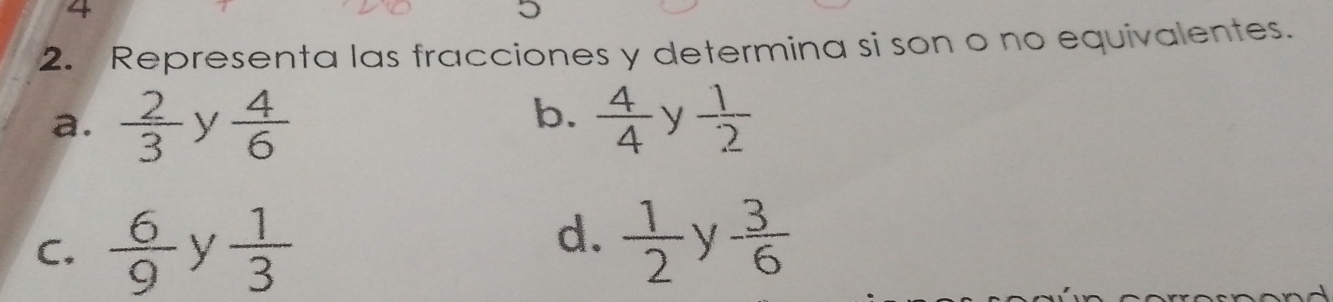 4 5
2. Representa las fracciones y determina si son o no equivalentes.
a. 2/3 y 4/6 b. 4/4 y 1/2
c. 6/9 y 1/3 d. 1/2 y 3/6